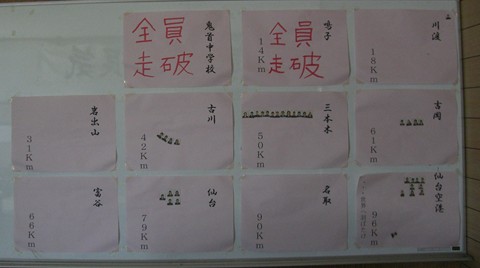 鬼首中学校
全員
走破
鳴子
14Km
全員
走破
川渡
18Km
岩出山
31Km
古川
42Km
三本木
50Km
吉岡
61Km
富谷
66Km
仙台
79Km
名取
90Km
仙台空港
96Km